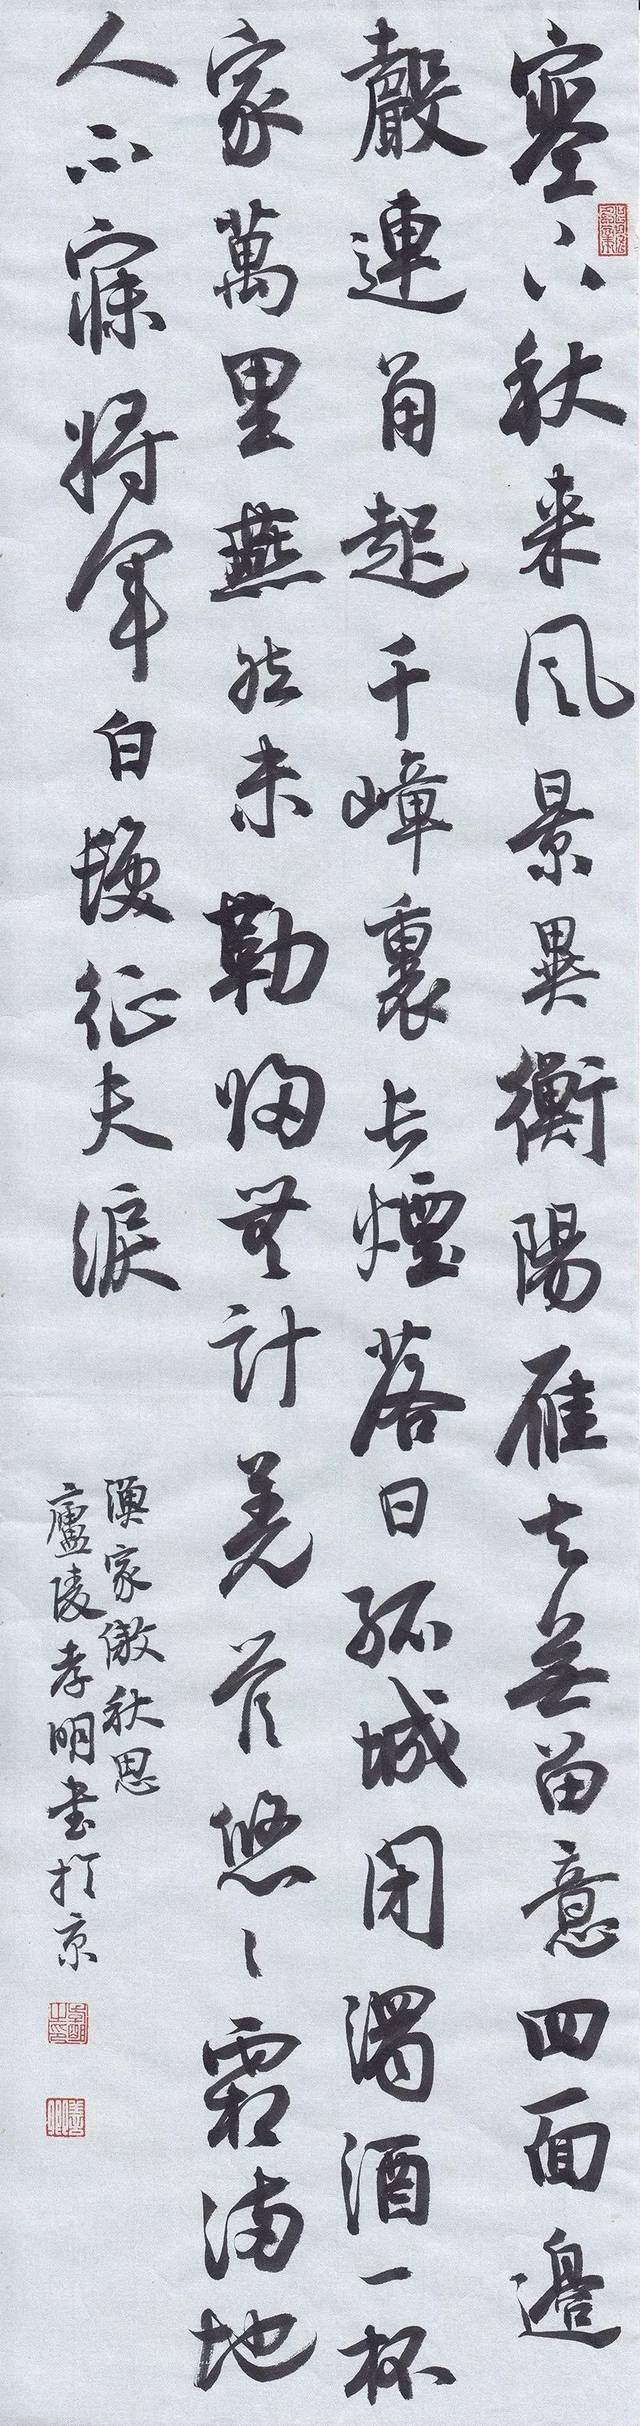 塞下秋来风景異衡陽雁去無留意四面邊
聲連角起千嶂裏长煙落日孤城闭濁酒一杯
家萬里燕然未勒歸無計羌管悠〻霜满地
人不寐将军白髮征夫淚
漁家傲秋思
廬陵孝明書於京